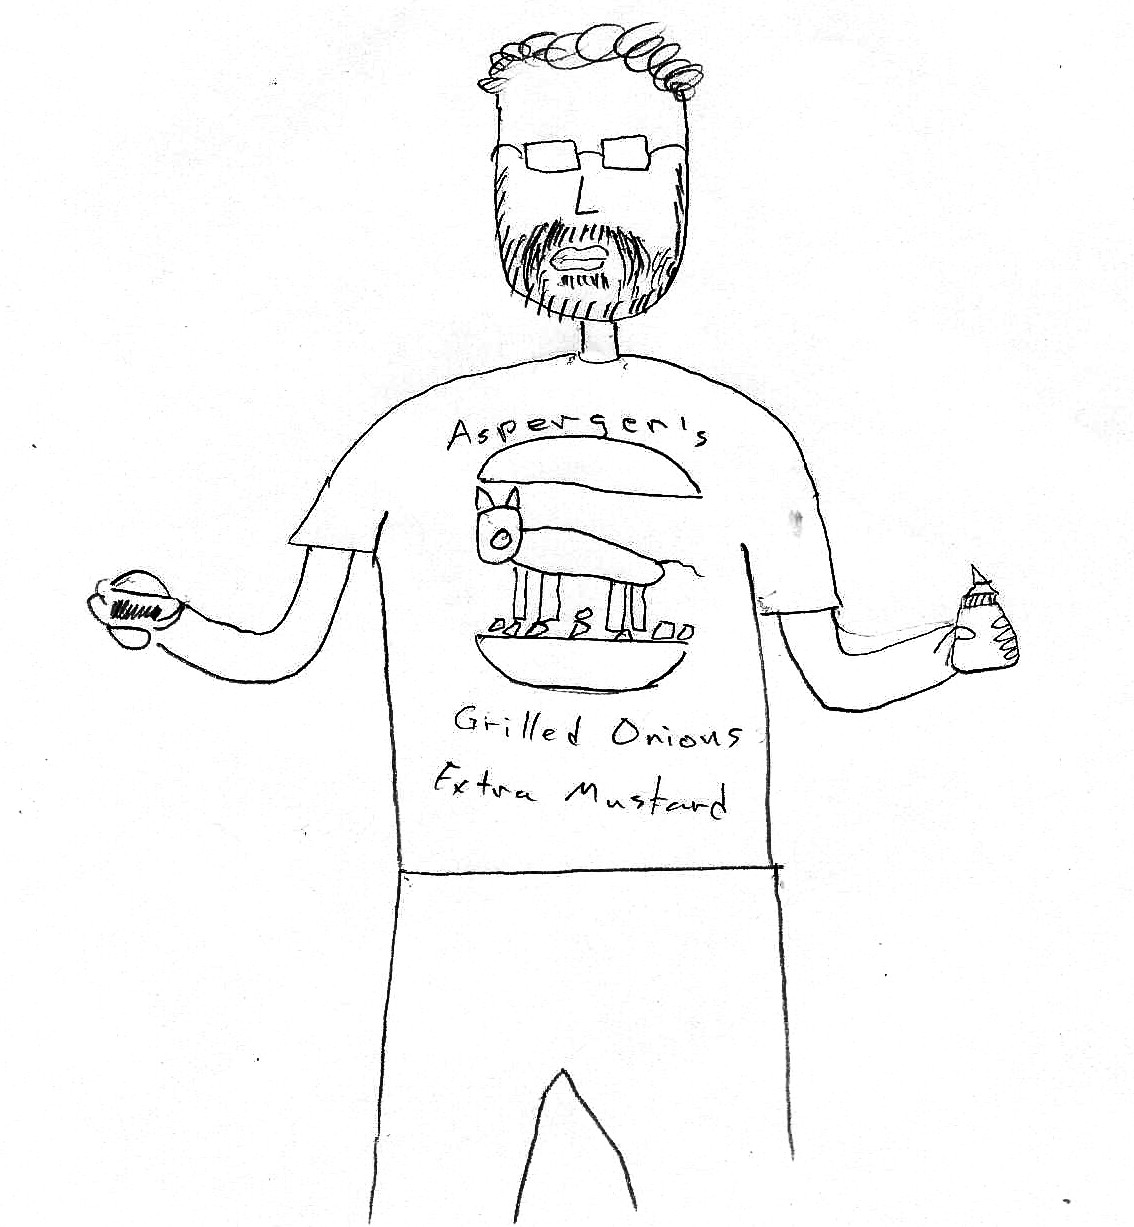 Asperger's
Grilled Onions
Extra Mustard